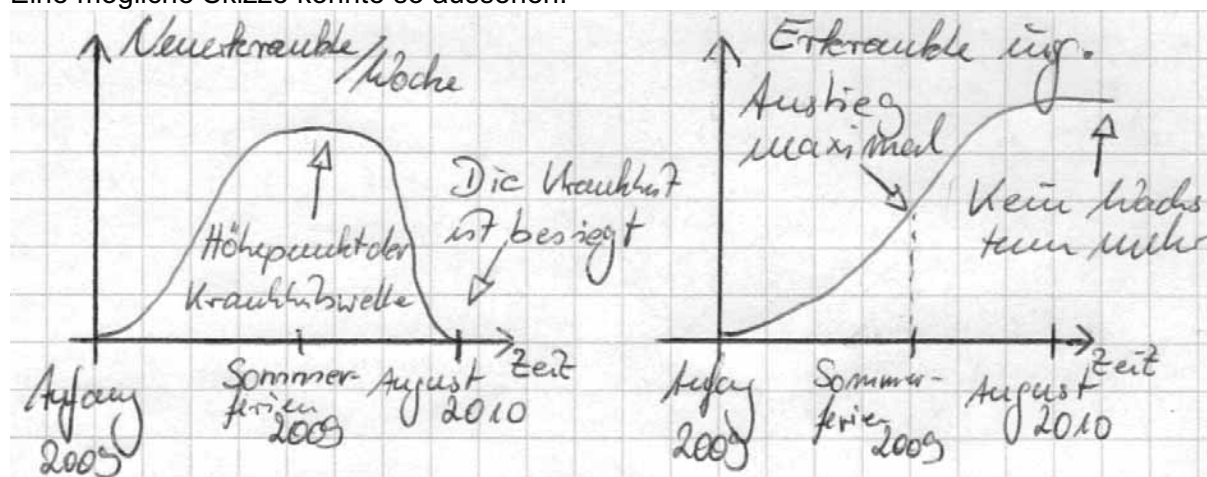 Eine mögliche Skizze könnte so aussehen:
Neuerkrankte
/Woche
Höhepunkt der
Krankheitswelle
Die Krankheit
ist besiegt
Anfang
2009
Sommer-
ferien
2009
August
2010
Zeit
Erkrankte insg.
Anstieg
maximal
Kein Wachs
tum mehr
Anfang
2009
Sommer-
ferien
2009
August
2010
Zeit